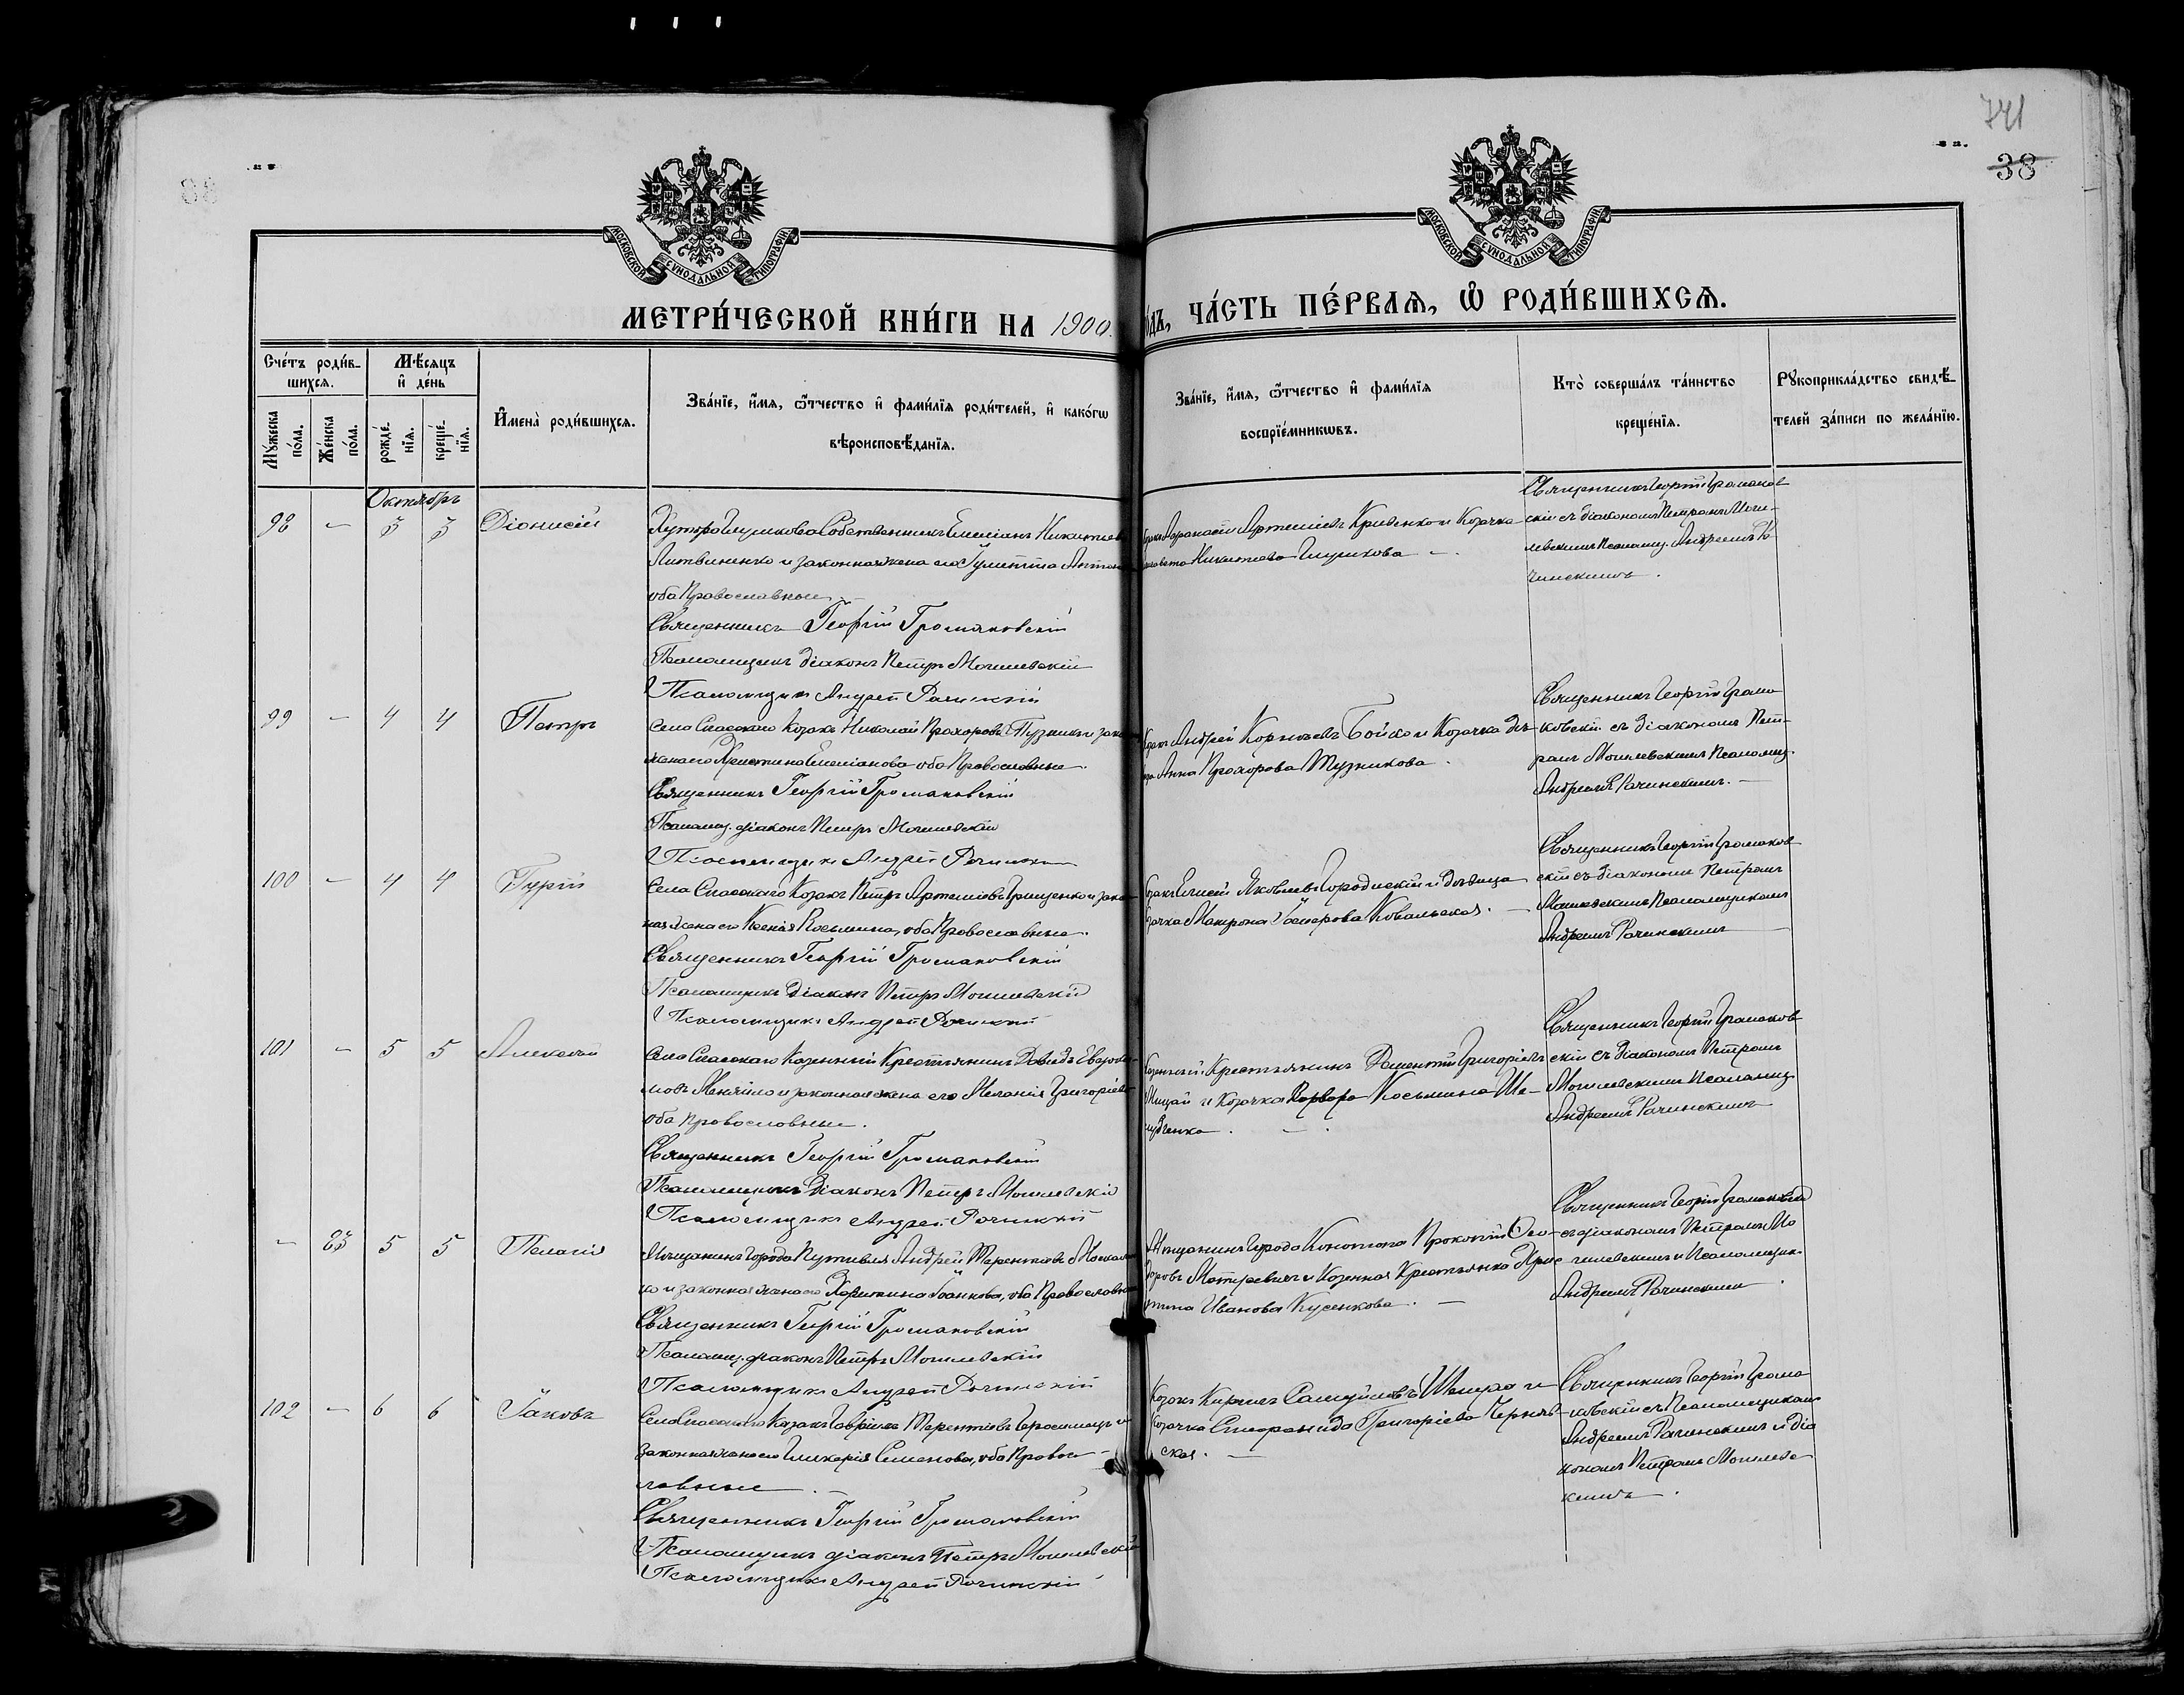 741
38
МОСКОВСКОЙ СУНОДАЛЬНОЙ ТИПОГРАФІИ.
МОСКОВСКОЙ СУНОДАЛЬНОЙ ТИПОГРАФІИ.
МЕТРИ́ЧЕСКОЙ КНИ́ГИ НА 1900.
ДЪ, ЧА́СТЬ ПЕ́РВАѦ, Ѽ РОДИ́ВШИХСѦ.
Сче́тъ роди́в-
шихсѧ.
Мѣ́сѧцъ
и҆ де́нь
Мꙋ́жеска по́ла.
Же́нска по́ла.
рожде́-нїѧ.
креще́-нїѧ.
И҆мена̀ роди́вшихсѧ.
Зва́нїе, и҆́мѧ, ѻ҆́тчество и҆ фами́лїѧ роди́телей, и҆ како́гѡ
вѣроисповѣ́данїѧ.
Зва́нїе, и҆́мѧ, ѻ҆́тчество и҆ фами́лїѧ
воспрїе́мникѡвъ.
Кто̀ соверша́лъ та́инство
креще́нїѧ.
Рꙋкоприкла́дство свидѣ́-
телей за́писи по жела́нїю.
Октябрь
98 - 3 3 Діонисій
Хутора Глушкова Собственникъ Емеліанъ Никитіевъ
Литвиненко и законная жена его
оба Православные
Священникъ Георгій Громаковскій
Псаломщикъ діаконъ Петръ Могилевскій
Псаломщикъ Андрей Рачинскій
Артеміевъ Кривенко и Козачка
Никитіева Глушкова
Священникъ Георгій Громаков-
скій съ діакономъ Петромъ Моги-
левскимъ Псаломщ. Андреемъ Ра-
чинскимъ.
99 - 4 4 Петръ
Села Спасскаго Козакъ Николай Прохоровъ и
жена его Христина Емеліанова оба Православные.
Священникъ Георгій Громаковскій
Псаломщ. діаконъ Петръ Могилевскій
Псаломщикъ Андрей Рачинскій
Козакъ Андрей Корніевъ Бойко и Козачка дѣ-
Анна Прохорова
Священникъ Георгій Грома-
ковскій съ діакономъ Пет-
ромъ Могилевскимъ Псаломщ.
Андреемъ Рачинскимъ.
100 - 4 4 Гурій
Села Спасскаго Козакъ Петръ Артеміовъ Грищенко и закон-
ная жена его Ксенія Косьмина, оба Православные.
Священникъ Георгій Громаковскій
Псаломщикъ діаконъ Петръ Могилевскій
Псаломщикъ Андрей Рачинскій
Козакъ Елисей Яковлевъ Городискій и дѣвица
Козачка Матрона Ковальская.
Священникъ Георгій Громаков-
скій съ діакономъ Петромъ
Могилевскимъ Псаломщикомъ
Андреемъ Рачинскимъ
101 - 5 5 Алексѣй
Села Спасскаго Казенный Крестьянинъ Давидъ
мовъ и законная жена его Меланія Григоріева
оба Православные.
Священникъ Георгій Громаковскій
Псаломщикъ Діаконъ Петръ Могилевскій
Псаломщикъ Андрей Рачинскій
Казенный Крестьянинъ Григоріевъ
и Козачка Варвара Косьмина Ше-
Священникъ Георгій Громаков-
скій съ діакономъ Петромъ
Могилевскимъ Псаломщ.
Андреемъ Рачинскимъ
- 23 5 5 Пелагія
Мѣщанинъ города Путивля Андрей Терентіевъ
и законная жена его оба Православные
Священникъ Георгій Громаковскій
Псаломщ. діаконъ Петръ Могилевскій
Псаломщикъ Андрей Рачинскій
Мѣщанинъ города Конотопа Прокопій Ѳео-
доровъ и Казенная Крестьянка Хрис-
тина Иванова Кусенкова.
Священникъ Георгій Громаковскій
съ діакономъ Петромъ Мо-
гилевскимъ и Псаломщик.
Андреемъ Рачинскимъ.
102 - 6 6 Іаковъ
Села Спасскаго Козакъ Гавріилъ Терентіевъ и
законная жена его Гликерія Семенова, оба Правос-
лавные
Священникъ Георгій Громаковскій
Псаломщикъ діаконъ Петръ Могилевскій
Псаломщикъ Андрей Рачинскій
Козакъ Кирилъ Самуиловъ и
Козачка Григоріева Черняв-
ская.
Священникъ Георгій Грома-
ковскій съ Псаломщикомъ
Андреемъ Рачинскимъ и діа-
кономъ Петромъ Могилевс-
кимъ.